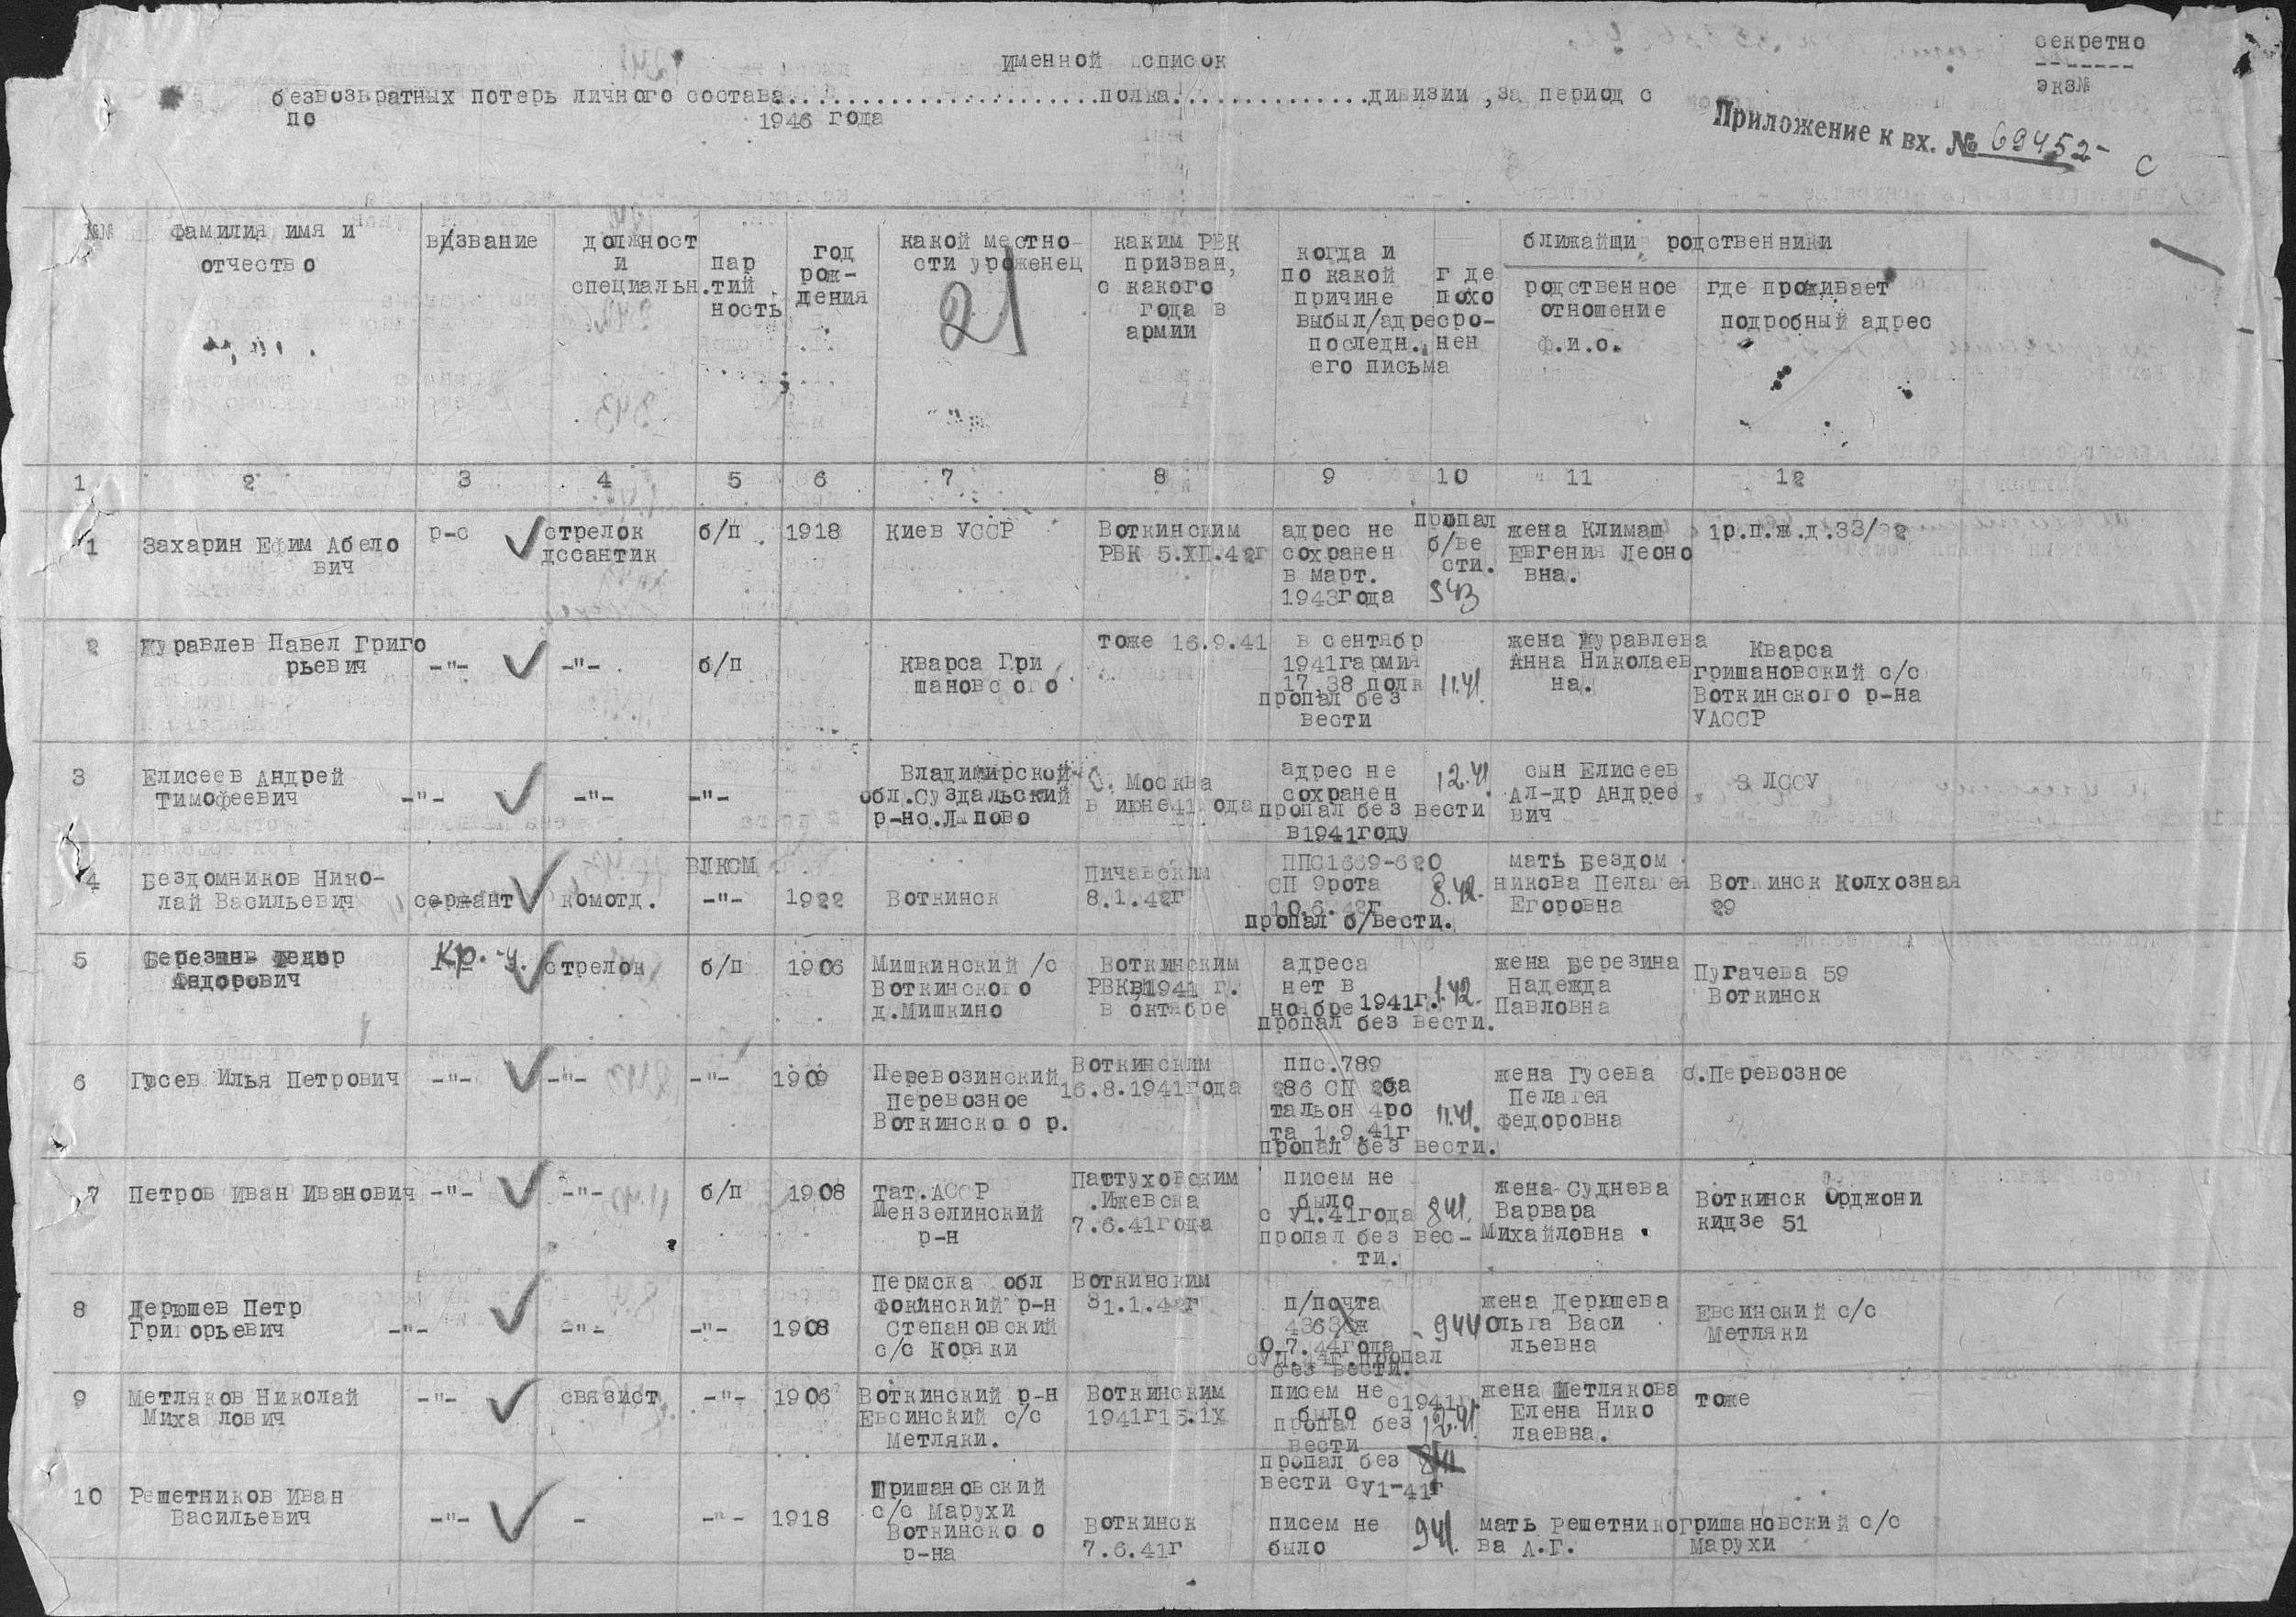 секретно
экз№
Именной список
безвозвратных потерь личного состава......................полка..............дивизии ,за период с
по 1946 года
Приложение к вх. № 69452 с
№№
фамилия имя и
отчество
в/звание
должност
и
специальн.
пар
тий
ность
год
рож-
дения
какой местно-
сти уроженец
21
каким РВК
призван,
с какого
года в
армии
когда и
по какой
причине
выбыл/адрес
последн.
его письма
где
похо
ро-
нен
ближайщи родственники
родственное
отношение
ф.и.о.
где проживает
подробный адрес
1 2 3 4 5 6 7 8 9 10 11 12
1
Захарин Ефим Абело
вич
р-с
стрелок
дссантик
б/п
1918
Киев УССР
Воткинским
РВК 5.XII.42г
адрес не
сохранен
в март.
1943года
пропал
б/ве
сти.
543
жена Климаш
Евгения Леоно
вна.
1р.п.ж.д.33/2
2
Журавлев Павел Григо
рьевич
-"-
-"-
б/п
Кварса Гри
шановсого
тоже 16.9.41
в сентябр
1941гармия
17,38 полк
пропал без
вести
11.41.
жена Журавлева
Анна Николаев
на.
Кварса
гришановский с/с
Воткинского р-на
УАССР
3
Елисеев Андрей
Тимофеевич
-"-
-"-
-"-
Владимирской
обл.Суздальский
р-нс.Лапово
г. Москва
в июне41 ода
адрес не
сохранен
пропал без вести
в1941году
12.41.
сын Елисеев
Ал-др Андрее
вич
з ЛССУ
4
Бездомников Нико-
лай Васильевич
сержант
комотд.
ВЛКСМ
-"-
1922
Воткинск
Пичавским
8.1.42г
ППС1669-620
СП 9рота
10.6.42г
пропал б/вести.
8.42.
мать Бездом
никова Пелагея
Егоровна
Воткинск Колхозная
29
5
Березин Федор
Федорович
Кр.-ц.
стрелок
б/п
1906
Мишкинский /с
Воткинского
д.Мишкино
Воткинским
РВКв1941 г.
в октябре
адреса
нет в
ноябре 1941г.
пропал без вести.
1.42.
жена Березина
Надежда
Павловна
Пугачева 59
Воткинск
6
Гусев Илья Петрович
-"-
-"-
-"-
1909
Перевозинский
Перевозное
Воткинско о р.
Воткинским
16.8.1941года
ппс.789
286 СП 2ба
тальон 4ро
та 1.9.41г
пропал без вести.
11.41.
жена Гусева
Пелагея
федоровна
с.Перевозное
7
Петров Иван Иванович
-"-
-"-
б/п
1908
Тат.АССР
Мензелинский
р-н
Пастуховским
.Ижевска
7.6.41года
писем не
было
с У1.41года
пропал без вес-
ти.
841.
жена Суднева
Варвара
Михайловна
Воткинск Орджони
кидзе 51
8
Дерюшев Петр
Григорьевич
-"-
-"-
-"-
1908
Пермска обл
Фокинский р-н
Степановский
с/с Коряки
Воткинским
31.1.42г
п/почта
0.7.44года
пропал
без вести.
944
жена Дерюшева
Ольга Васи
льевна
Евсинский с/с
Метляки
9
Метляков Николай
Миха лович
-"-
связист
-"-
1906
Воткинский р-н
Евсинский с/с
Метляки.
Воткинским
1941г15.1х
писем не
было с1941г.
пропал без
вести
12.41.
жена Метлякова
Елена Нико
лаевна.
тоже
10
Решетников Иван
Васильевич
-"-
-
-"-
1918
Гришановский
с/с Марухи
Воткинско о
р-на
Воткинск
7.6.41г
пропал без
вести сУ1-41г
писем не
было
941.
мать Решетнико
ва А.Г.
гришановский с/с
Марухи